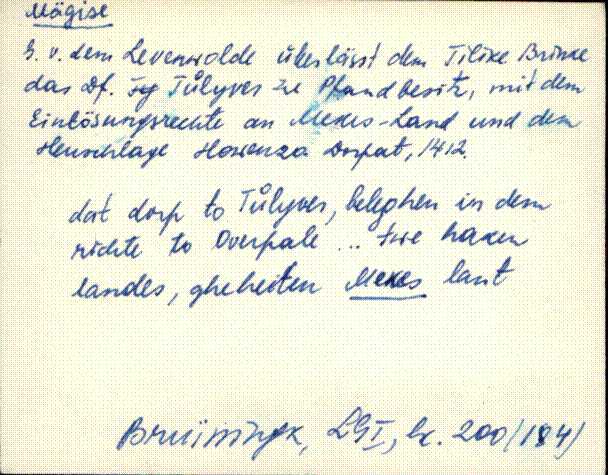 Mägise
H. v. dem Levenwolde überlässt dem Tilike Brinke
das Df. Tůlyver zu Pfandbesitz, mit dem
Einlösungsrechte an Mekes-Land und dem
Heuschlage Howenza Dorpat, 1412.
dat dorp to Tůlyver, beleghen in dem
richte to Overpale ... twe haken
landes, gheheiten Mekes lant
Bruiningk, LG I, lk. 200 (184)